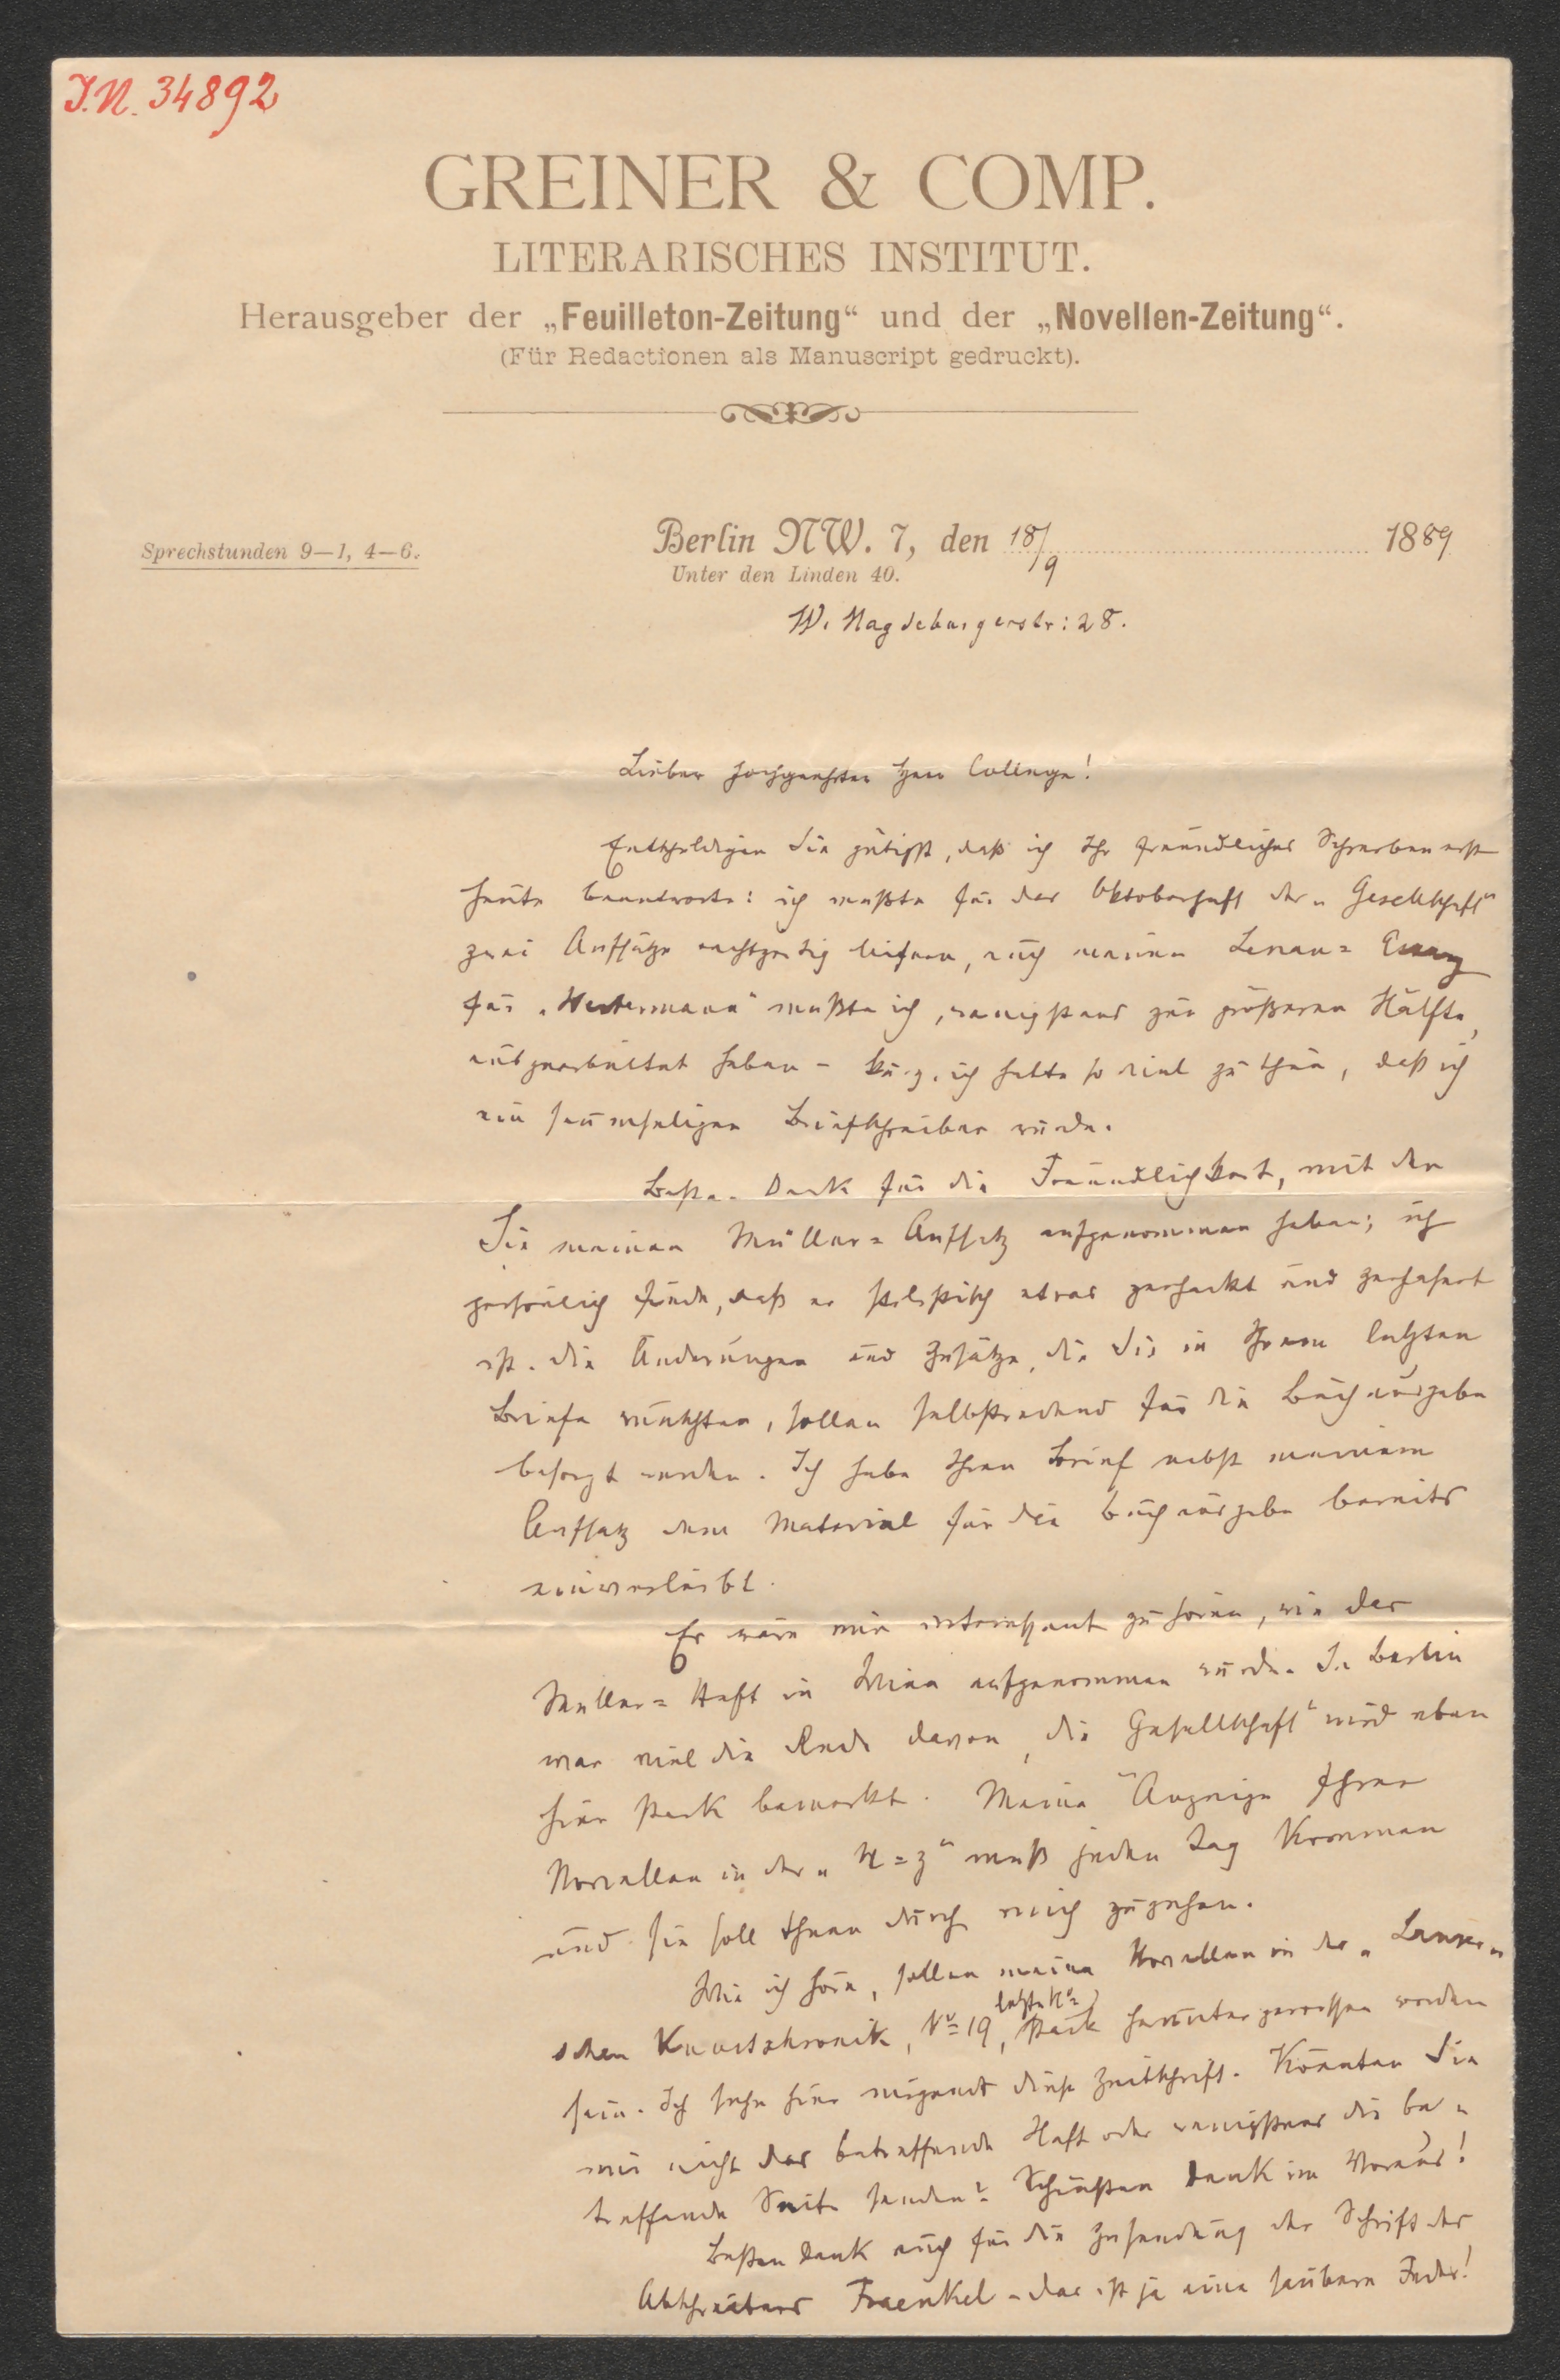 J.N. 34892
GREINER & COMP.
LITERARISCHES INSTITUT.
Herausgeber der „Feuilleton-Zeitung“ und der „Novellen-Zeitung“.
(Für Redactionen als Manuscript gedruckt).
Sprechstunden 9—1, 4—6.
Berlin NW. 7, den 18/9 1889
Unter den Linden 40.
W. Magdeburgerstr: 28.
Lieber hochgeehrter Herr College!
Entschuldigen Sie gütigst, daß ich Ihr freundliches Schreiben erst
heute beantworte: ich mußte für das Oktoberheft der „Gesellschaft“
zwei Aufsätze rechtzeitig liefern, auch meinen Lenau=Essay
für „Westermann“ mußte ich, wenigstens zur größeren Hälfte,
ausgearbeitet haben – kurz, ich hatte so viel zu thun, daß ich
ein saumseliger Briefschreiber wurde.
Besten Dank für die Freundlichkeit, mit der
Sie meinen Müller=Aufsatz aufgenommen haben; ich
persönlich finde, daß er stilistisch etwas zerhackt und zerfasert
ist. Die Änderungen und Zusätze, die Sie in Ihrem letzten
Briefe wünschten, sollen selbstredend für die Buchausgabe
besorgt werden. Ich habe Ihren Brief nebst meinem
Aufsatz dem Material für die Buchausgabe bereits
einverleibt.
Es wäre mir interessant zu hören, wie das
Müller=Heft in Wien aufgenommen wurde. In Berlin
war viel die Rede davon, die „Gesellschaft“ wird eben
hier stark bemerkt. Meine Anzeige Ihrer
Novellen in der „N=Z“ muß jeden Tag kommen
und sie soll Ihnen durch mich zugehen.
Wie ich höre, sollen meine Novellen in der „
schen Kunstchronik, No 19, letzte No stark heruntergerissen worden
sein. Ich sehe hier nirgends diese Zeitschrift. Könnten Sie
mir nicht das betreffende Heft oder wenigstens die be=
treffende Seite senden? Schönsten Dank im Voraus!
Besten Dank auch für die Zusendung der Schrift des
Abschreibers Fraenkel – das ist ja eine saubere Feder!